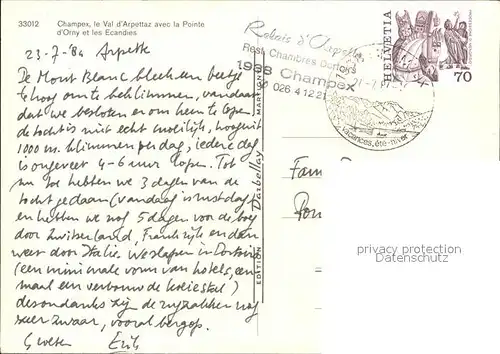 33012
Champex, le Val d'Arpettaz avec la Pointe
d'Orny et les Ecandies
23-7-84 Arpette
De Mont Blanc bleek een beetje
te hoog om te beklimmen, vandaar
dat we besloten er om heen te lopen.
de tocht is niet echt moeilijk, hooguit
1000 m. klimmen per dag, iedere dag
is ongeveer 4-6 uur lopen. Tot
nu toe hebben we 3 dagen van de
tocht gedaan (vandaag is rustdag)
en hebben we nog 5 dagen voor de boeg
door Zwitserland, Frankrijk en dan
weer door Italie. We slapen in Dortoirs
(een minimale vorm van hotels, een
maal een verbouwde koeiestal)
desondanks zijn de rugzakken nog
zeer zwaar, vooral bergop.
Groeten Erik
Relais d'Arpette
Rest. Chambres Dortoirs
1938 Champex
026 4 12 21
vacances, été-hiver
HELVETIA
70
EDITION Darbellay MARTIGNY
Fam
protection photo
copyright